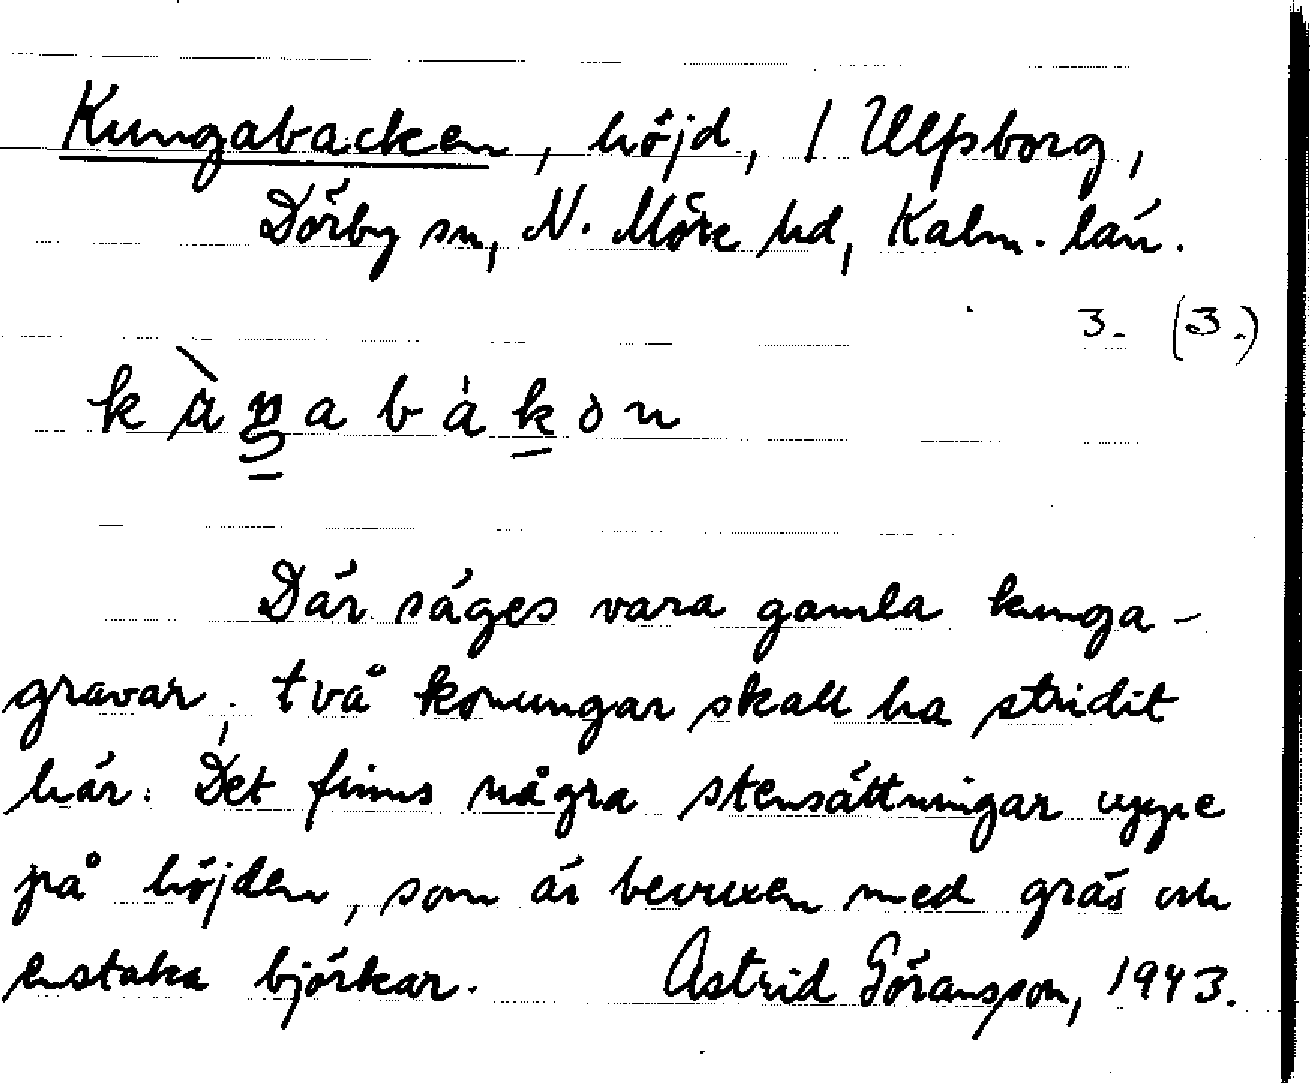 Kungabacken, höjd, / Ulfsborg,
Dörby sn, N. Möre hd, Kalm. län.
3. (3.)
Där säges vara gamla kunga-
gravar; två konungar skall ha stridit
här. Det finns några stensättningar uppe
på höjden, som är bevuxen med gräs och
enstaka björkar. Astrid Göransson, 1943.